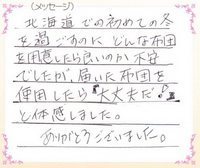 (メッセージ)
北海道での初めての冬
を過ごすのに どんな布団
を用意したら良いのか 不安
でしたが、届いた布団を
使用したら"大丈夫だ!!"
と体感しました。
ありがとうございました。